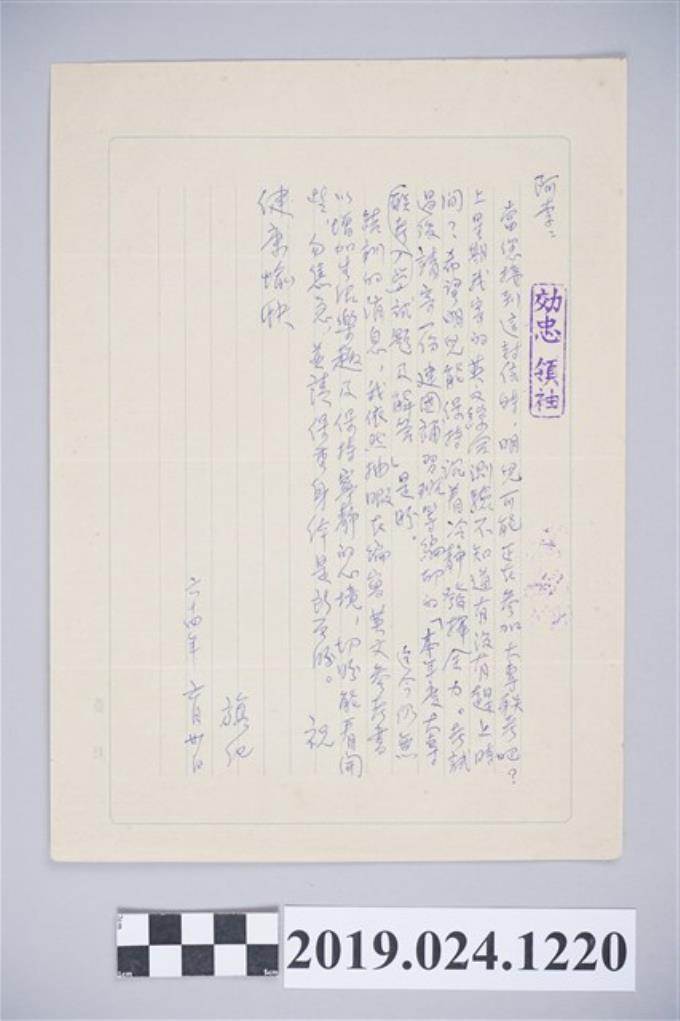 阿李:
當您接到這封信時，明兒可能正在參加大專聯考吧？
上星期我寄的英文綜合測驗不知道有沒有趕上時
間？希望明兒能保持沉着冷靜，發揮全力。考試
過後請寄一份建國補習班等編印的「本年度大專
聯考入學試題及解答」是盼。
迄今仍無
結訓的消息，我依然抽暇在編寫英文參考書
以增加生活樂趣及保持寧靜的心境，切盼能看開
些，勿焦急，並請保重身体是所至盼。 祝
健康愉快
旗化
六十四年 六月廿日
效忠 領袖
2019.024.1220